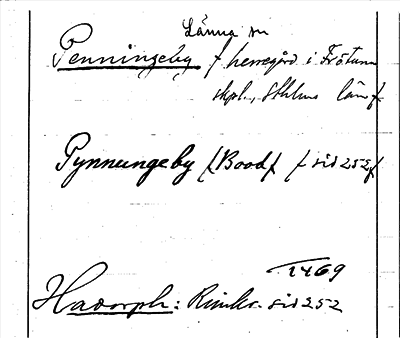 Länna sn
Penningeby f herregård i Frötuna
skpl., Sthlms län f.
Pynnungeby f Boodf f sid 252 f
1469
Hadorph: Rimkr. sid 252